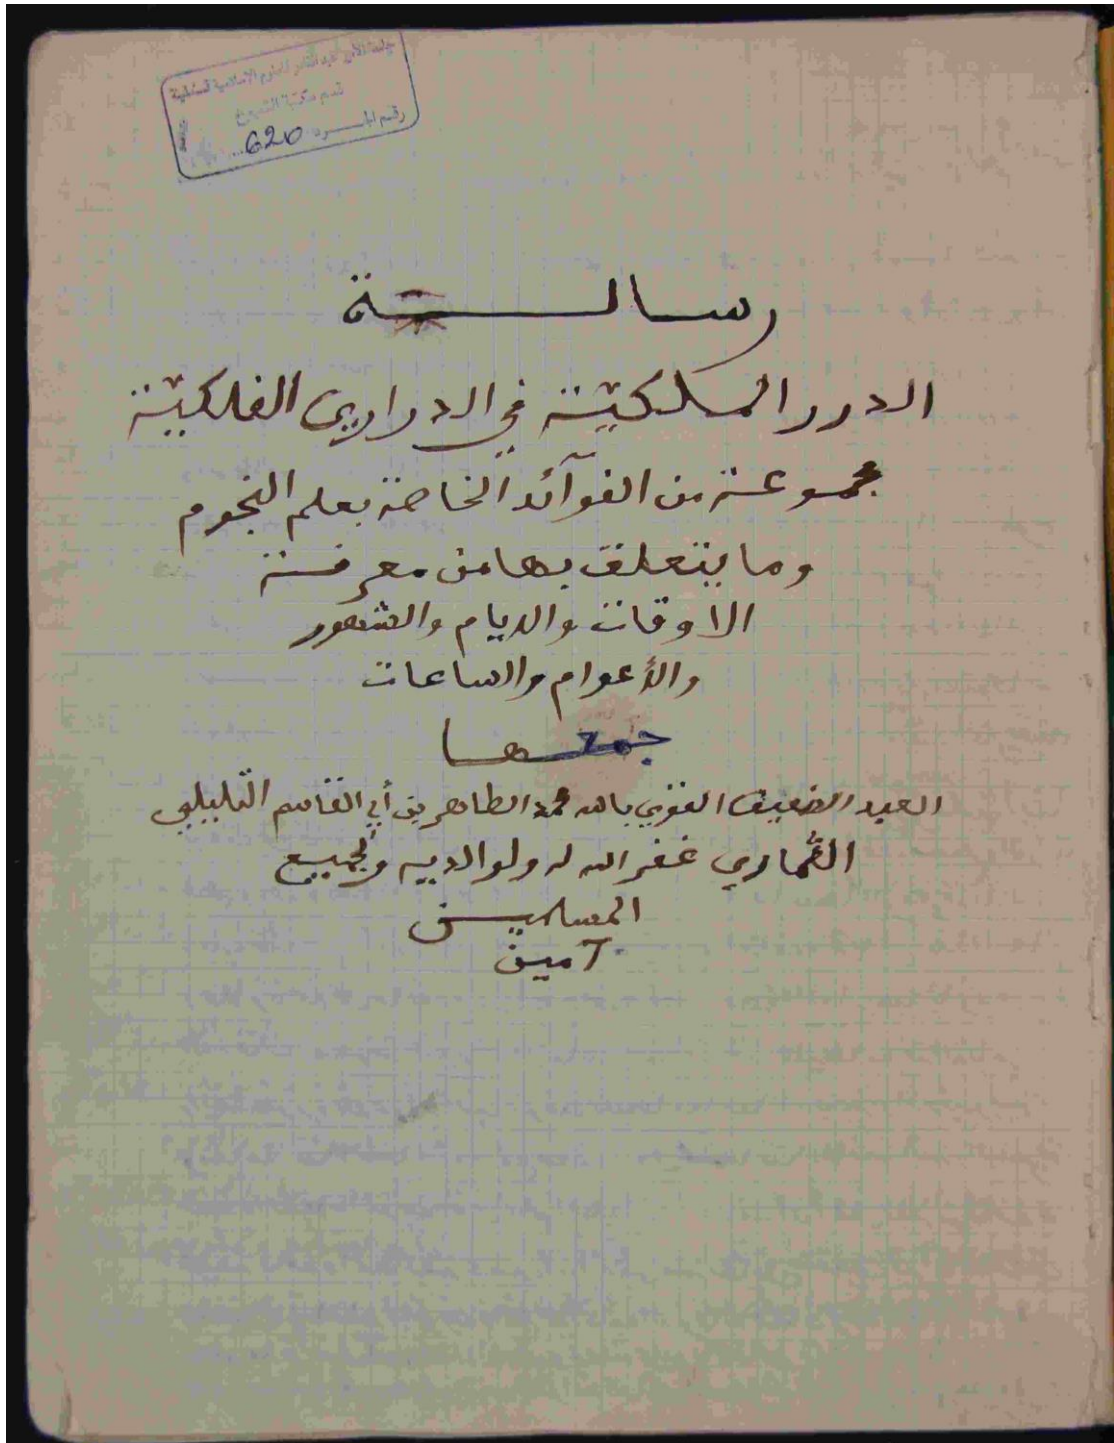 جامعة الأمير عبد القادر للعلوم الإسلامية قسنطينة
قسم مكتبة الشيوخ
رقم الجرد 620
رسالة
الدرر السلكيّة في الدراري الفلكيّة
مجموعة من الفوآئد الخاصة بعلم النجوم
وما يتعلق بها من معرفة
الاوقات والايام والشهور
والأعوام والساعات
جمعها
العبد الضعيف القوي بالله محمد الطاهر بن أبي القاسم التليلي
القماري غفر الله له ولوالديه ولجميع
المسلمين
آمين